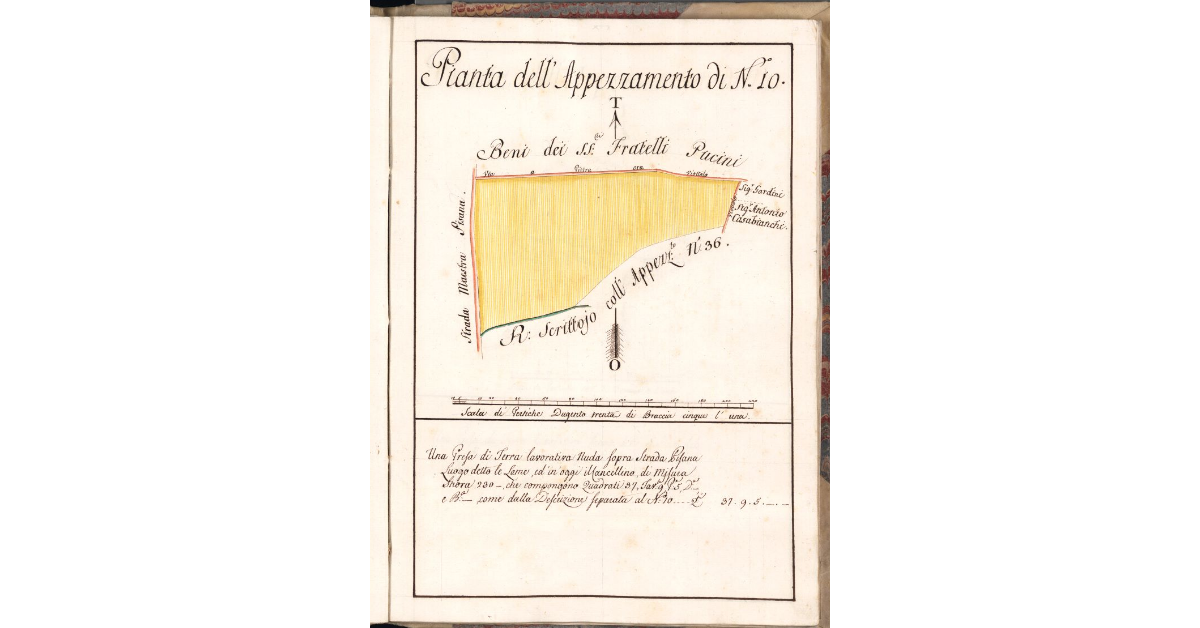 Pianta dell' Appezzamento di N.º 10.
T
Beni dei SS.ri Fratelli Pacini
Via a Pietra ora Viottolo
Sig.r Gordini
Sig.r Antonio
Casabianchi.
Strada Maestra Pisana.
R: Scrittojo coll' Appezz.to N.º 36.
O
Scala di Pertiche Dugento trenta di Braccia cinque l' una.
Una Presa di Terra lavorativa Nuda sopra Strada Pisana
Luogo detto le Lame, ed in oggi il Cancellino, di Misura
Stiora 230 _, che compongono Quadrati 37, Tav.e 9 P.e 5. D.e _
e B.a _ come dalla Descrizione separata al N.º 10 37. 9. 5. _ . _